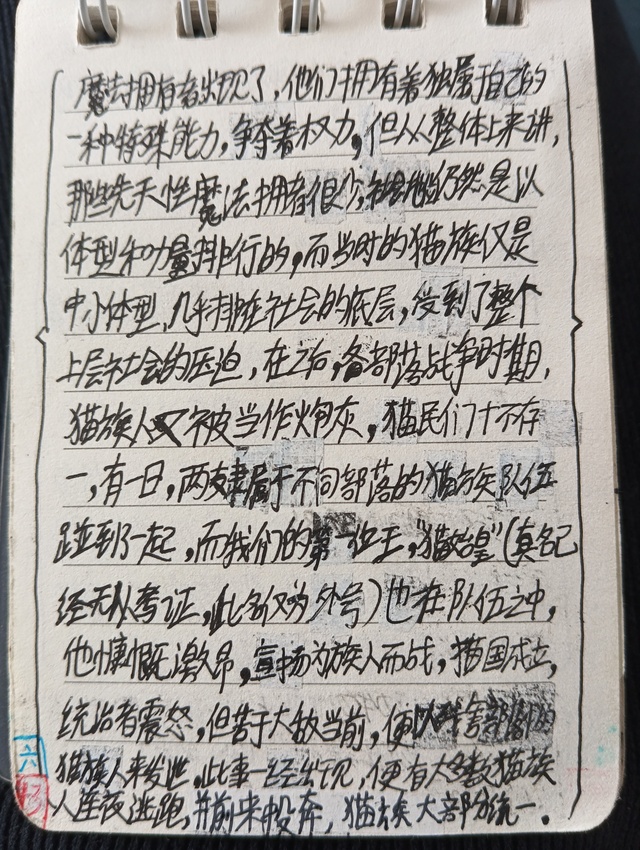 魔法拥有者出现了，他们拥有着独属于自己的
一种特殊能力，争夺着权力，但从整体上来讲，
那些先天性魔法拥有很少，社会地位仍然是以
体型和力量排行的，而当时的猫族仅是
中小体型，几乎排在社会的底层，受到了整个
上层社会的压迫，在之后，各部落战争时期，
猫族人又被当作炮灰，猫民们十不存
一，有一日，两支隶属于不同部落的猫族队伍
碰到了一起，而我们的第一位王，“猫始皇”（真名已
经无从考证，此名仅为外号）也在队伍之中，
他慷慨激昂，宣扬为族人而战，猫国成立，
统治者震怒，但苦于大敌当前，便以残害部落的
猫族人来发泄，此事一经出现，便有大多数猫族
人连夜逃跑，并前来投奔，猫族大部分统一。
六